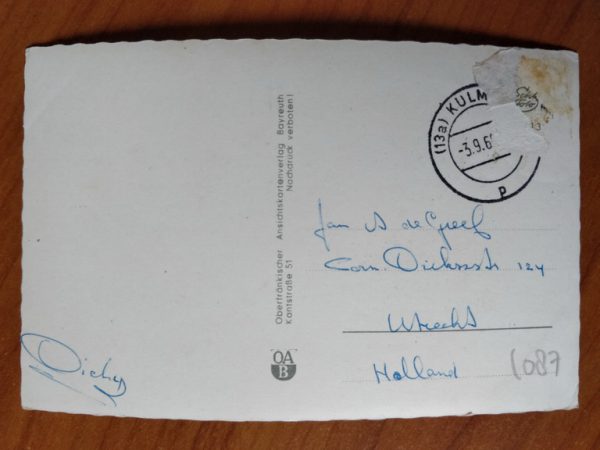 (13a) KULM
-3.9.6
P
Oberfränkischer Ansichtskartenverlag Bayreuth
Kantstraße 51 Nachdruck verboten!
OA
B
Jan A de Greef
Corn. Dirkszstr 124
Utrecht
Holland
1087